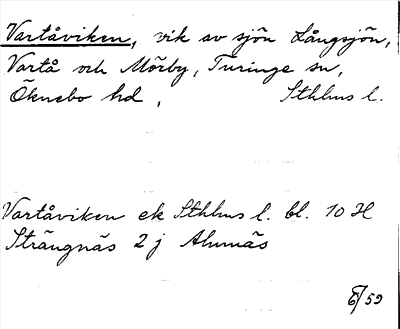 Vartåviken, vik av sjön Långsjön,
Vartå och Mörby, Turinge sn,
Öknebo hd, Sthlms l.
Vartåviken ek Sthlms l. bl. 10 H
Strängnäs 2 j Alumäs
6/59